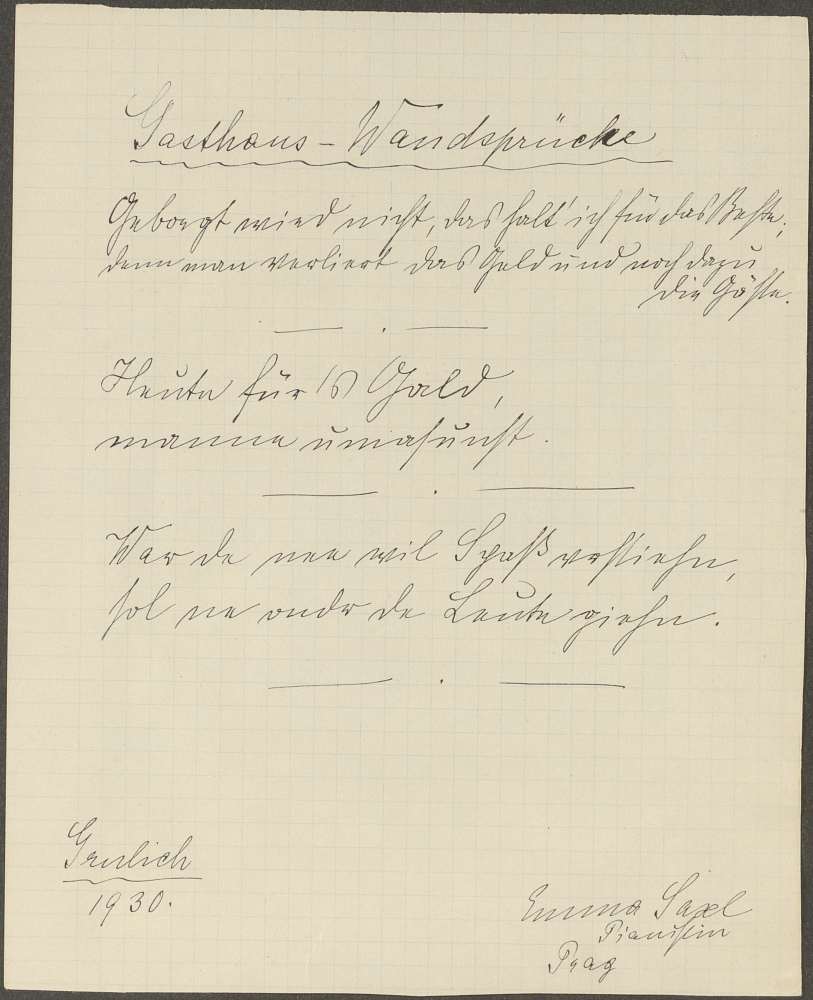 Gasthaus-Wandsprüche
Geborgt wird nicht, das halt' ich für das Beste;
denn man verliert das Geld und noch dazu
die Gäste.
Heute für's Gald,
manne umasunst.
War de nee wil Spaß vrstiehn,
sol ne ondr de Leute giehn.
Grulich
1930.
Emma Saxl
Pianistin
Prag